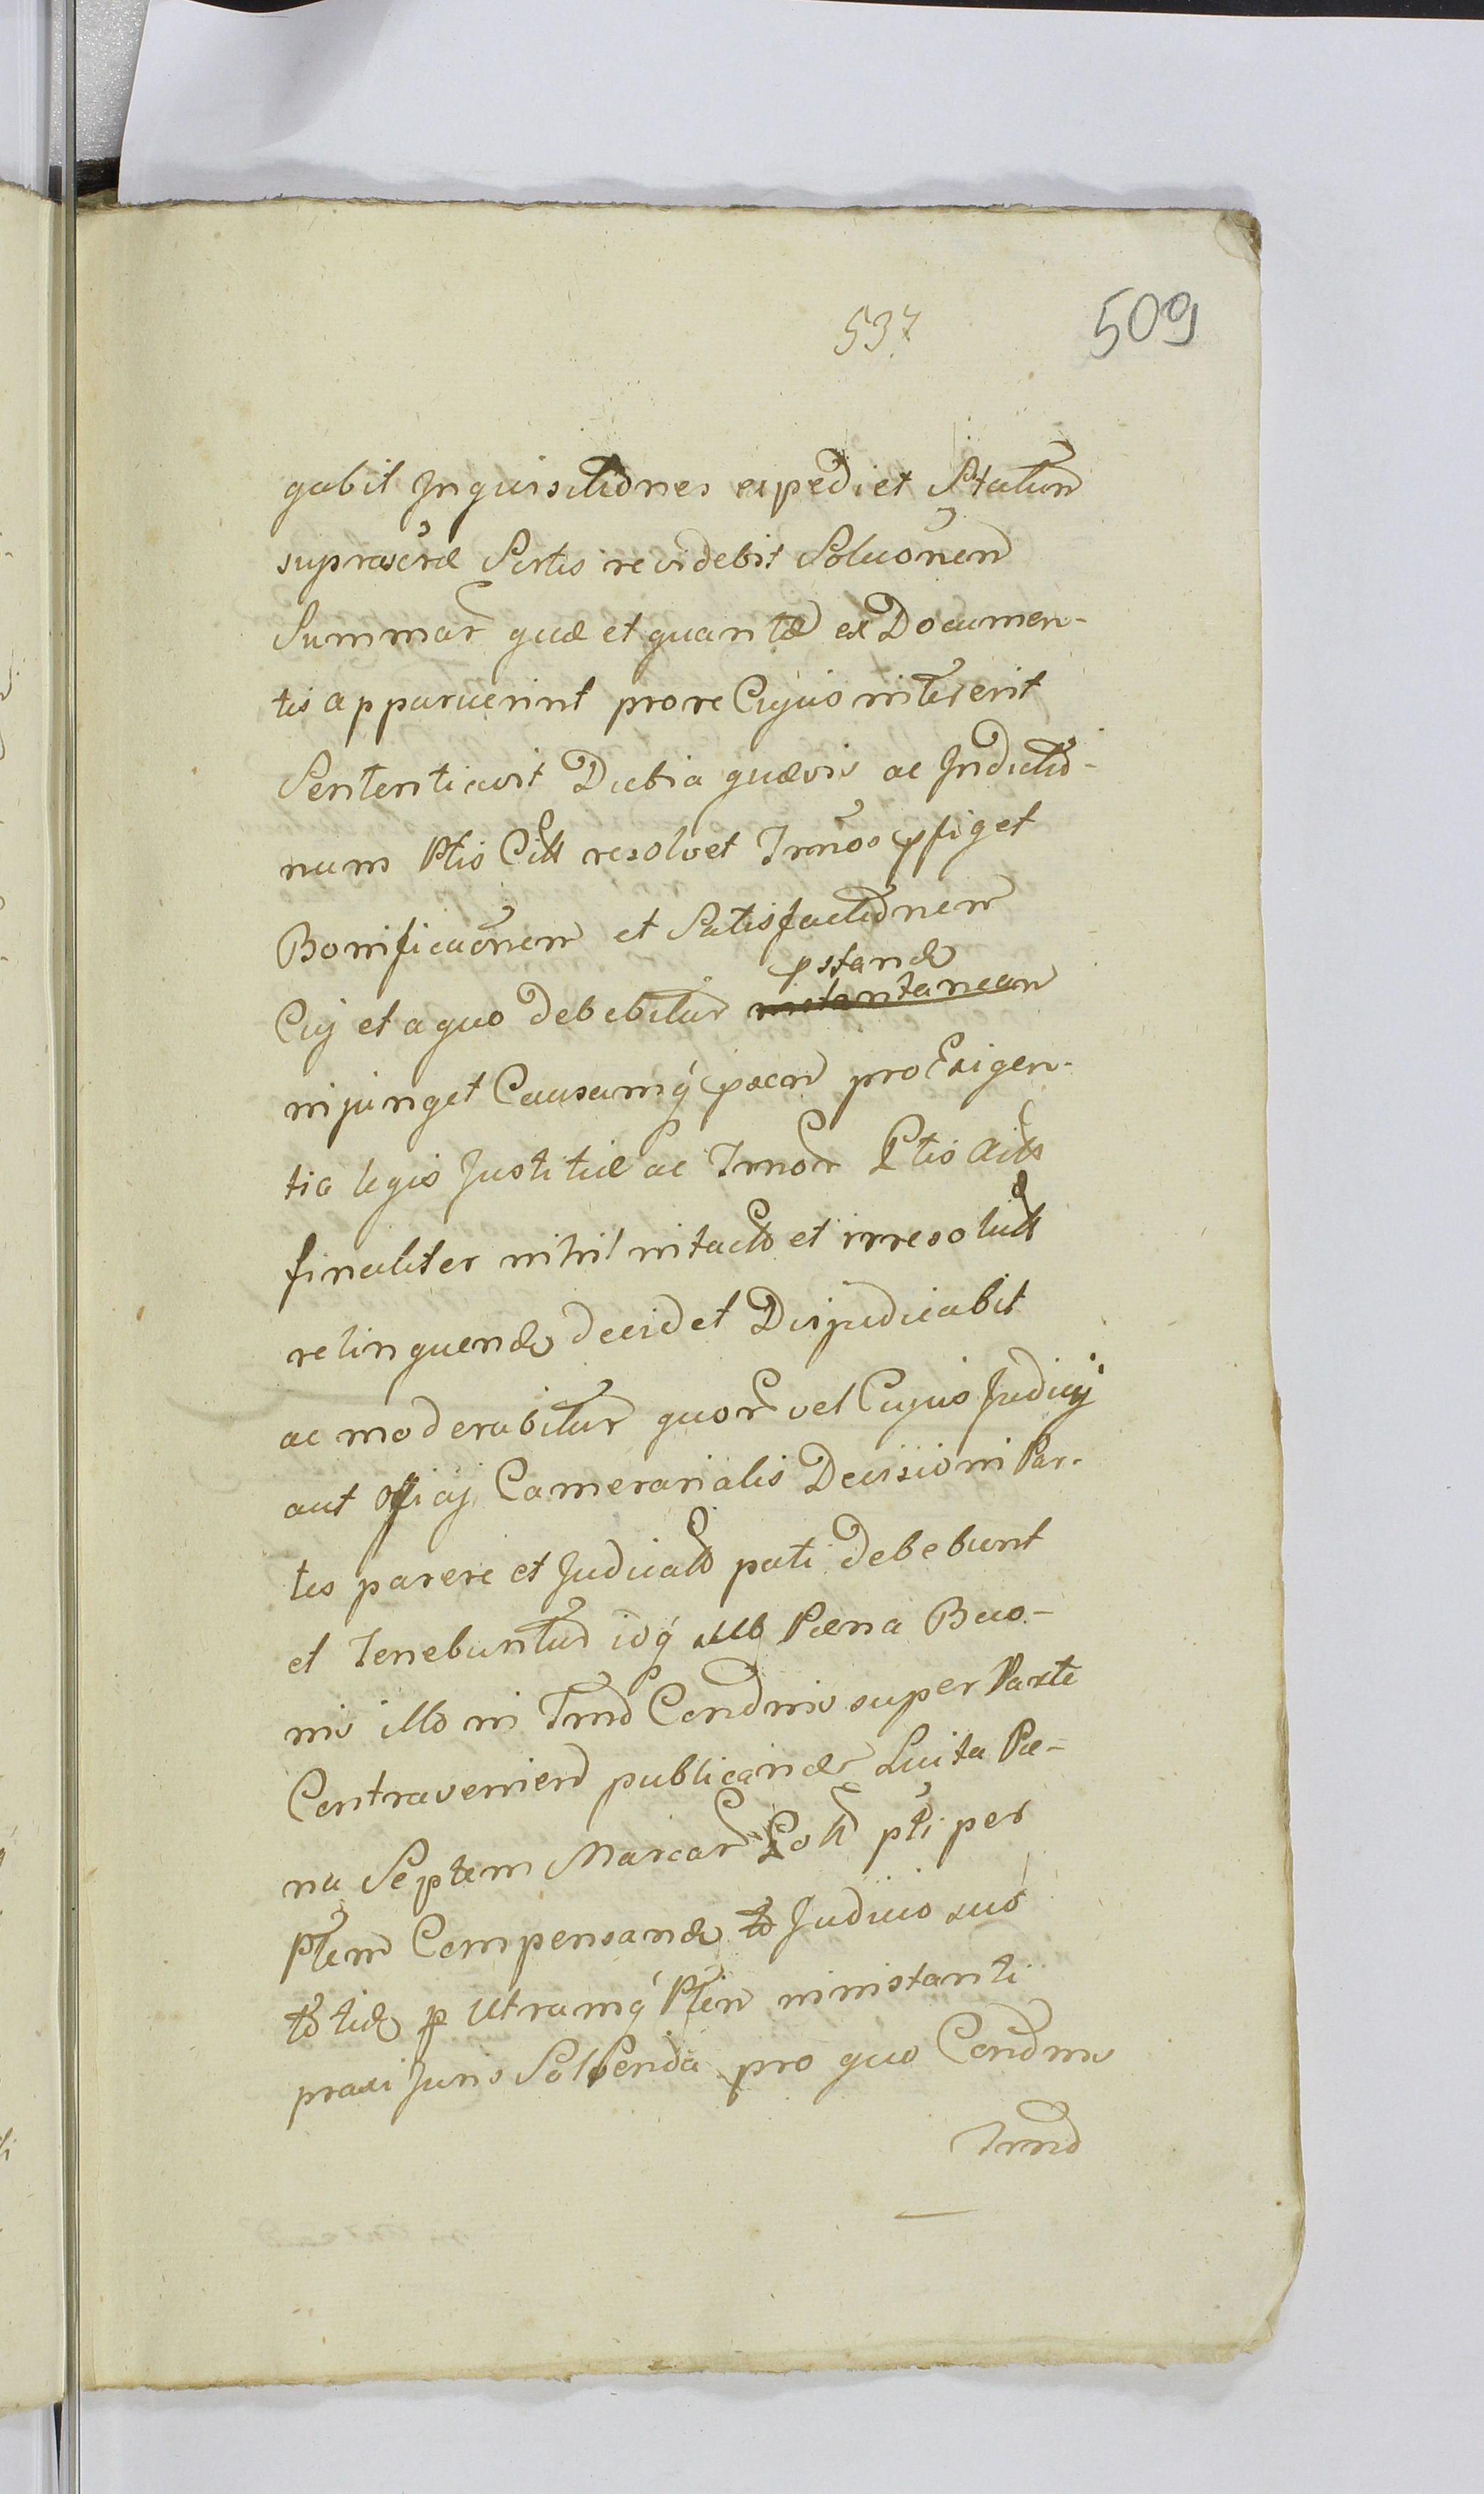 537
509
gabit Inquisitiones expediet Statum
suprascrae Sortis revidebit Soluonem
Summar quae et quantae ex Documen-
tis apparuerint pro re Cujus intererit
Sententiavit Dubia quaevis ac Inductio-
num Ptis resolvet Trnos pfiget
Bonificaonem et Satisfactionem
pstand
Cuj et a quo debebitur instantanean
injunget Causamq psen pro Exigen-
tia legis Justitiae ac Trnor Ptis
finaliter nihil intacto et irresoluto
relinquendo decidet Dijudicabit
ac moderabitur quor vel Cujus Judicij
aut Officij Camerarialis Decisioni Par-
tes parere et Judicato pati debebunt
et Tenebuntur idq sub Paena Bao-
nis illo in Trno Condnis super Parte
Contravenien publicandae Luita Pae-
na Septem Marcar Pol pti per
Ptem Compensanda to Judicio suo
toties p Utramq Ptem in instanti
praxi Juris Solvenda pro quo Condnis
Trno